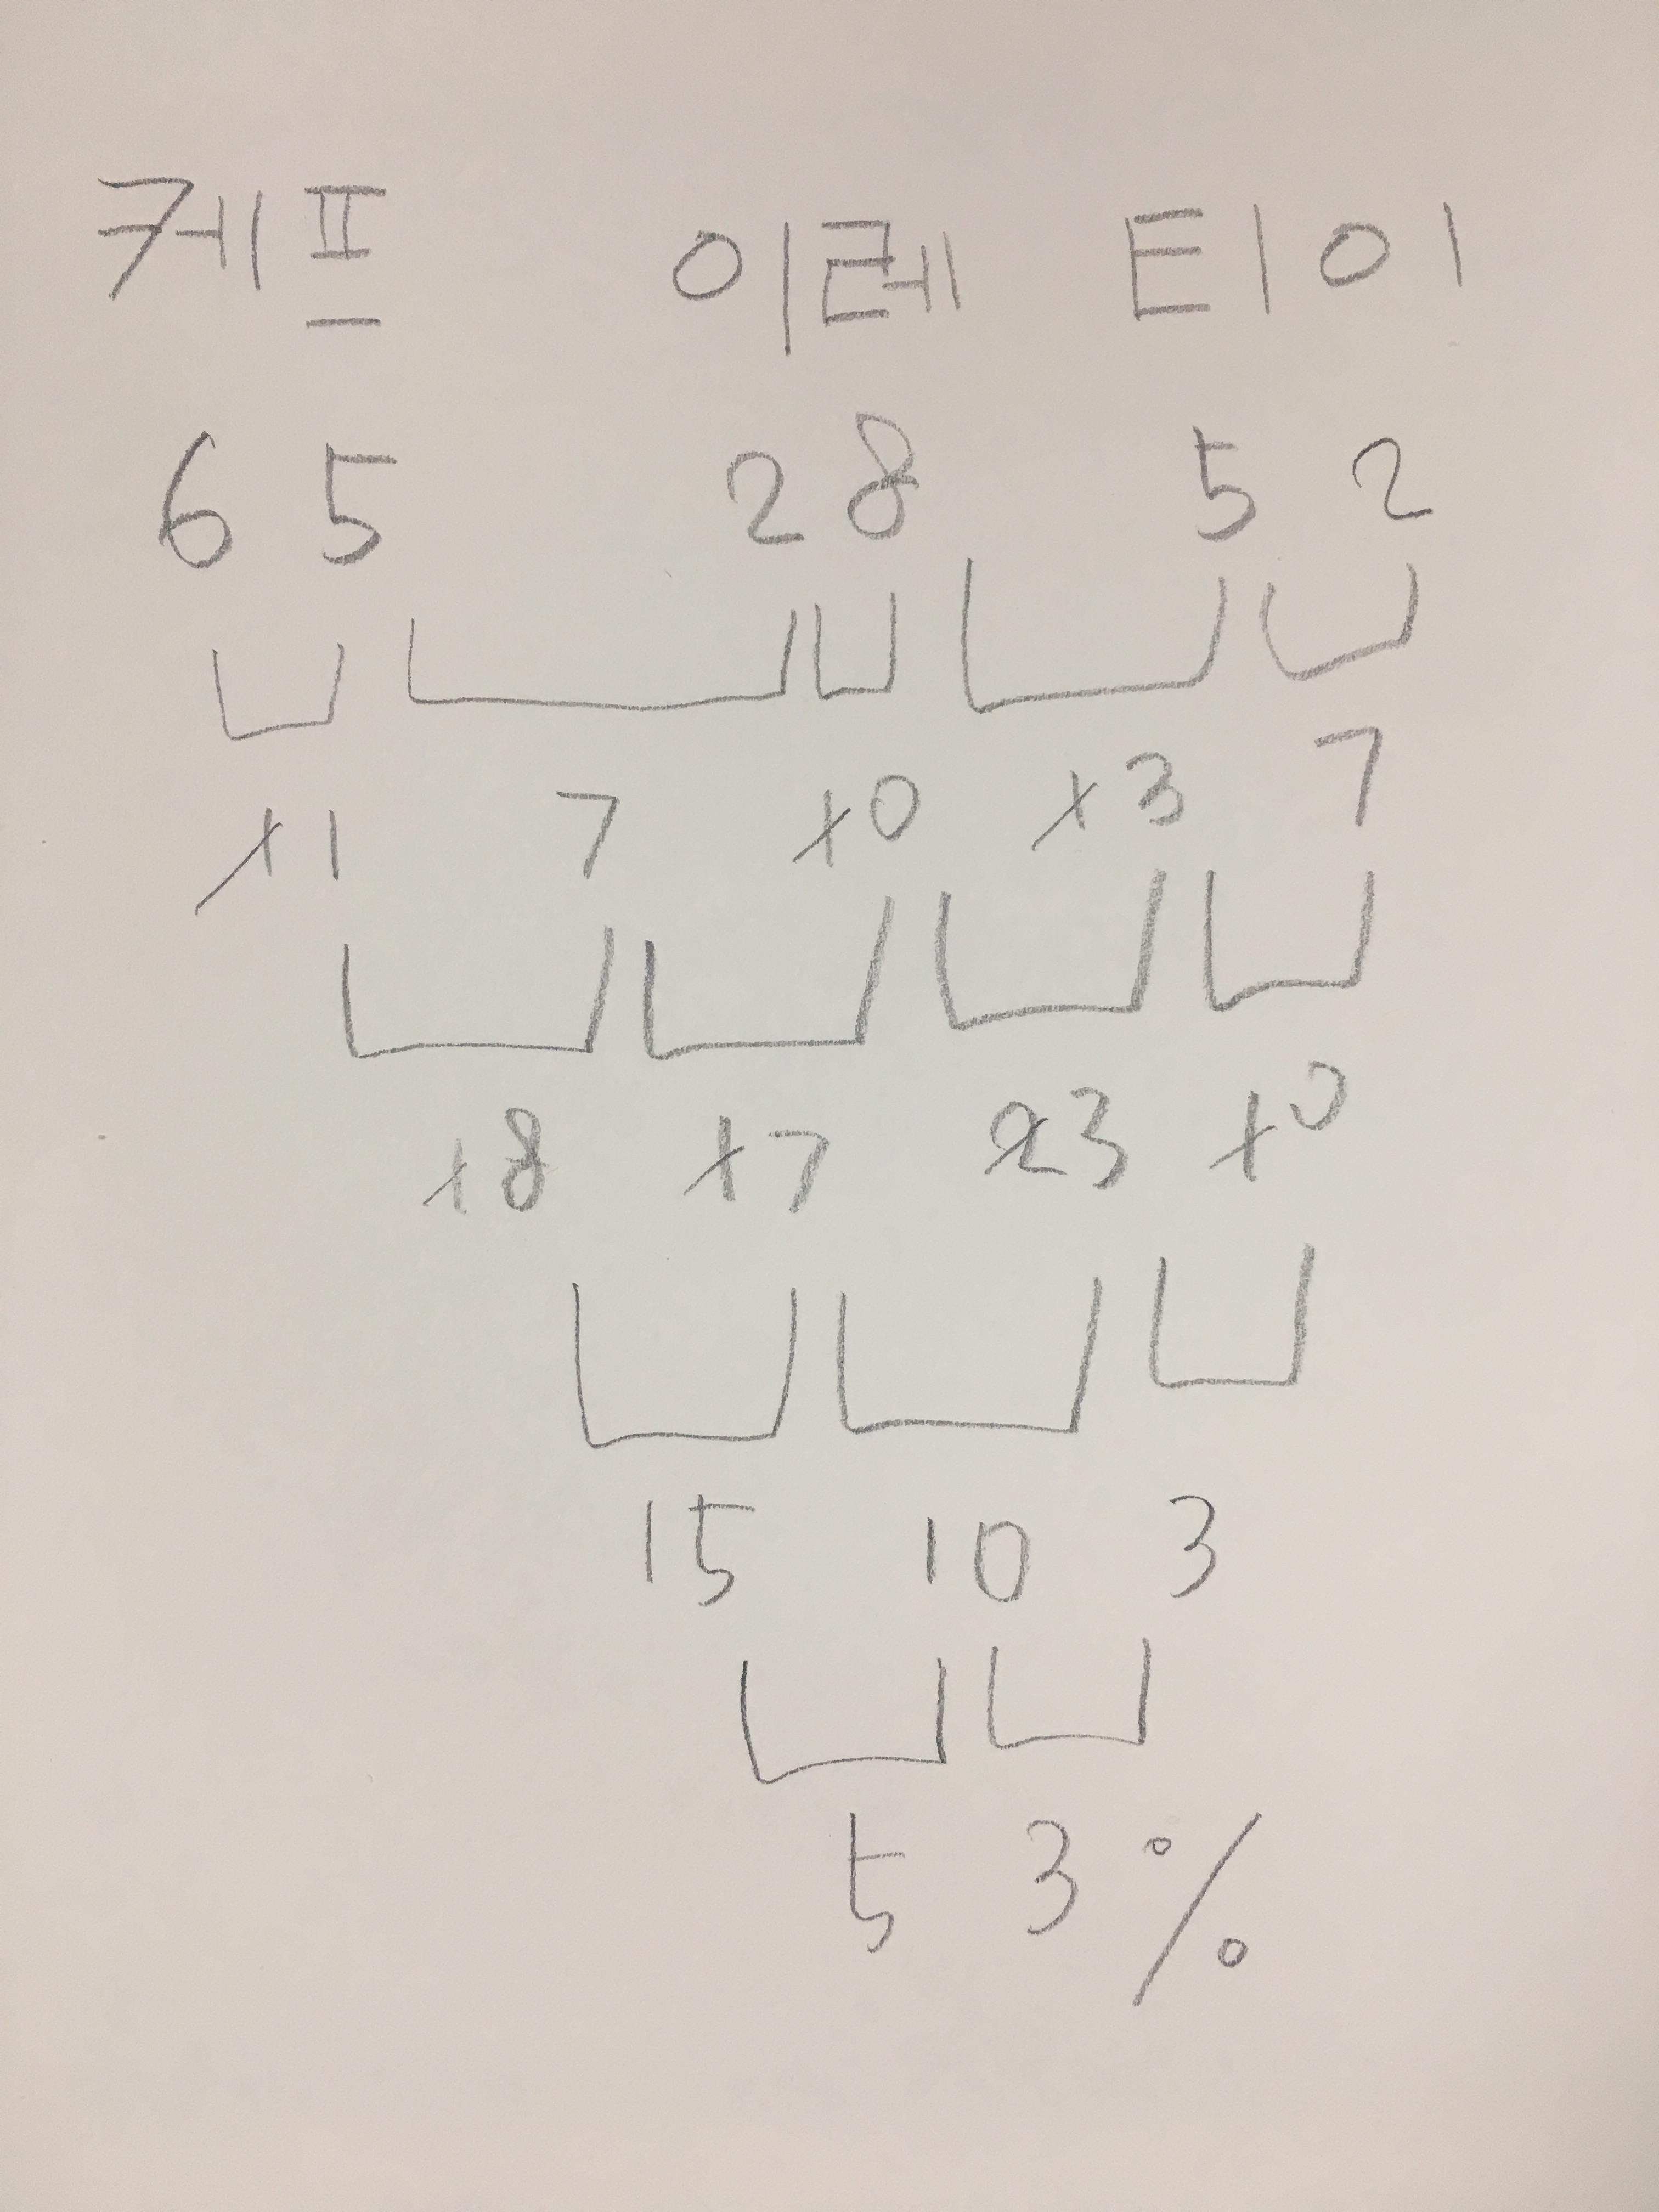 케프 이레 티이
6 5 2 8 5 2
11 7 10 13 7
18 17 3 10
15 10 3
5 3 %